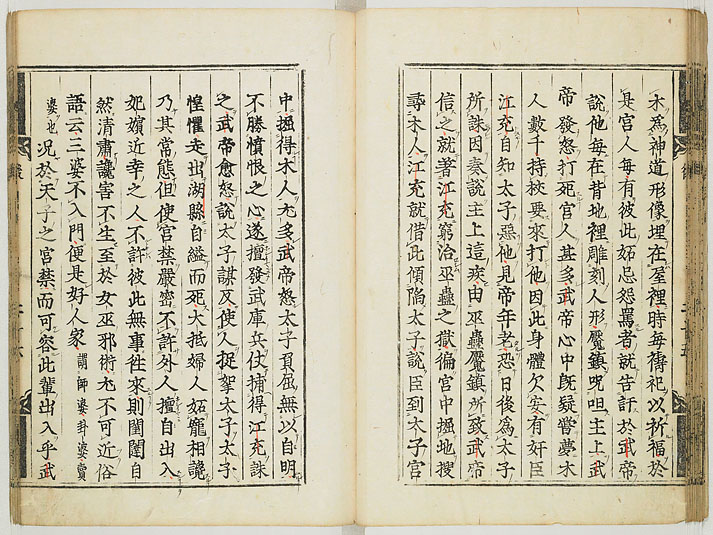 木爲神道形像埋在屋裡時每禱祀以祈福於
是宮人每有彼此妬忌怨罵者就告訐於武帝
說他每在背地裡雕刻人形魘鎮呪咀主上武
帝發怒打死宮人甚多武帝心中旣疑嘗夢木
人數千持杖要來打他因此身體欠安有奸臣
江充自知太子惡他見帝年老恐日後爲太子
所誅因奏說主上這疾由巫蠱魘鎮所致武帝
信之就著江充窮治巫蠱之獄徧宮中掘地搜
尋木人江充就借此傾陷太子說臣到太子宮
中掘得木人尢多武帝怒太子負屈無以自明
不勝憤恨之心遂擅發武庫兵仗捕得江充誅
之武帝愈怒說太子謀反使人捉拏太子太子
惶懼走出湖縣自縊而死大抵婦人妬寵相讒
乃其常態但使宮禁嚴密不許外人擅自出入
妃嬪近幸之人不許彼此無事徃來則閨闥自
然清肅讒害不生至於女巫邪術尢不可近俗
語云三婆不入門便是好人家謂師婆卦婆賣
婆也况於天子之宮禁而可容此輩出入乎武